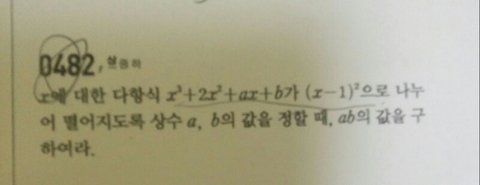 0482, 상중하
x에 대한 다항식 x³+2x²+ax+b가 (x-1)²으로 나누
어 떨어지도록 상수 a, b의 값을 정할 때, ab의 값을 구
하여라.